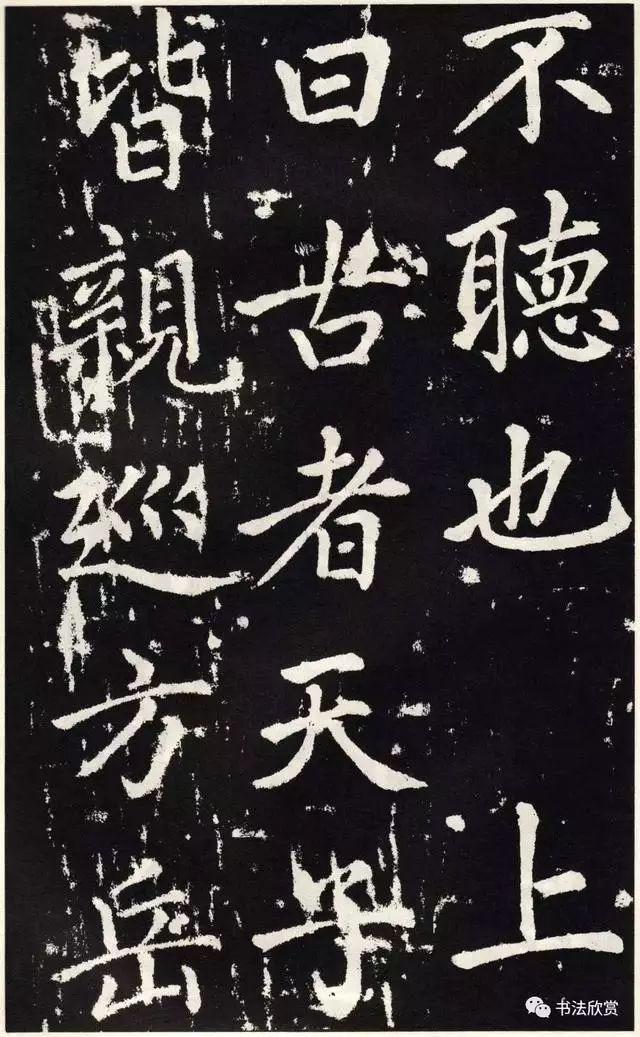 不聽也 上
曰昔者天子
皆親巡方岳
书法欣赏